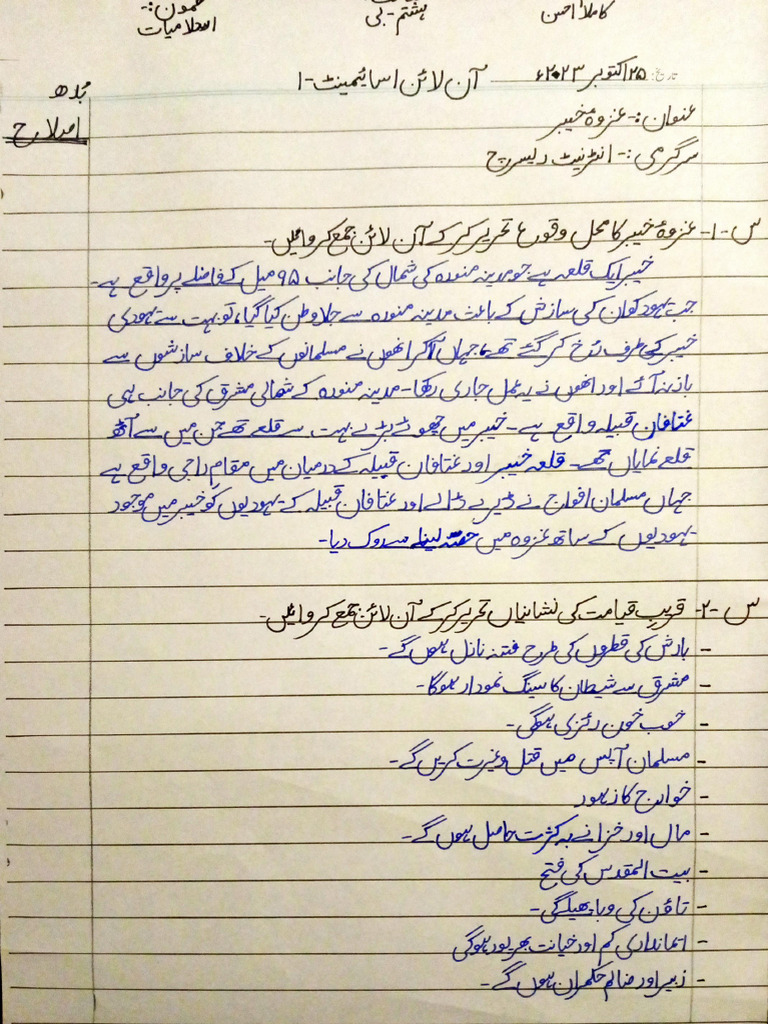 کاملا احسن ہشتم-بی مضمون:-
اسلامیات
تاریخ: ۲۵ اکتوبر ۲۰۲۳ء آن لائن اسائیمینٹ-۱ بُدھ
عنوان:- غزوہ خیبر اصلاح
سرگرمی:- انٹرنیٹ ریسرچ
س-۱- غزوۂ خیبر کا محل وقوع تحریر کر کے آن لائن جمع کروائیں-
خیبر ایک قلعہ ہے جو مدینہ منورہ کی شمال کی جانب ۹۵ میل کے فاصلے پر واقع ہے-
جب یہود کو ان کی سازش کے باعث مدینہ منورہ سے جلا وطن کیا گیا، تو بہت سے یہودی
خیبر کی طرف رُخ کر گئے تھے، جہاں آکر انھوں نے مسلمانوں کے خلاف سازشوں سے
باز نہ آئے اور انھوں نے یہ عمل جاری رکھا- مدینہ منورہ کے شمالی مشرق کی جانب ہی
غتافان قبیلہ واقع ہے- خیبر میں چھوٹے بڑے بہت سے قلعے تھے جن میں سے آٹھ
قلعے نمایاں تھے- قلعہ خیبر اور غتافان قبیلہ کے درمیان میں مقام راجی واقع ہے
جہاں مسلمان افواج نے ڈیرے ڈالے اور غتافان قبیلہ کے یہودیوں کو خیبر میں موجود
یہودیوں کے ساتھ غزوہ میں حصّہ لینے سے روک دیا-
س-۲- قربِ قیامت کی نشانیاں تحریر کر کے آن لائن جمع کروائیں-
- بارش کی قطروں کی طرح فتنہ نازل ہوں گے-
- مشرق سے شیطان کا سینگ نمودار ہوگا-
- خوب خون رئزی ہوگی-
- مسلمان آپس میں قتل و غیرت کریں گے-
- خوارج کا زہور
- مال اور خزانے بہ کثرت حاصل ہوں گے-
- بیت المقدس کی فتح
- تاؤن کی وبا پھیلے گی-
- ایمانداری کم اور خیانت بھرپور ہوگی
- زبیر اور ضالم حکمران ہوں گے-